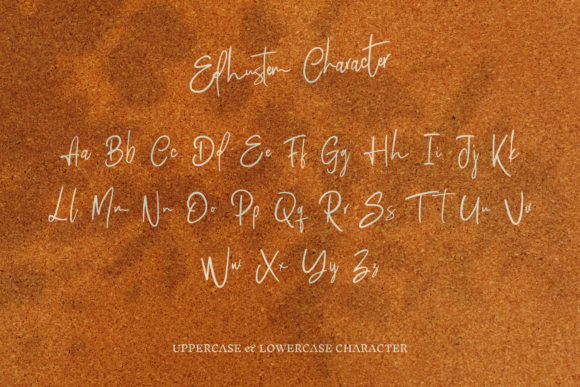 Edhustem Character
Aa Bb Cc Dd Ee Ff Gg Hh Ii Jj Kk
Ll Mm Nn Oo Pp Qq Rr Ss Tt Uu Vv
Ww Xx Yy Zz
UPPERCASE & LOWERCASE CHARACTER